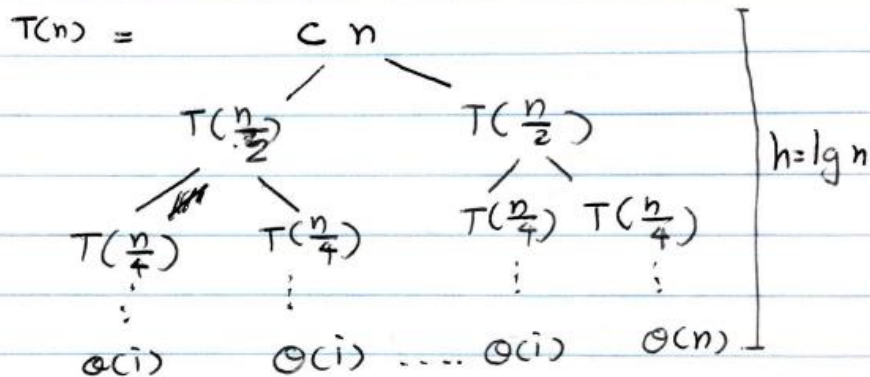 T(n) = c n
T(n/2) T(n/2)
h=lg n
T(n/4) T(n/4) T(n/4) T(n/4)
⋮ ⋮ ⋮ ⋮
Θ(i) Θ(i) ..... Θ(i) Θ(n)